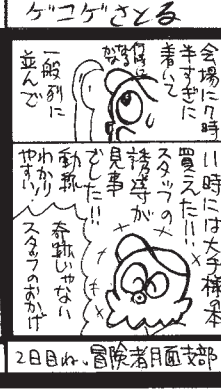 ゲコゲさとる
会場に7時
半すぎに
着いて
一般列に
並んで
11時には大手梯本
買えた!!
スタッフの
誘導が
見事
でした!!
動揺
わかり
やすい!
奇跡じゃない
スタッフのおかげ
2日目ね、冒険者月面支部